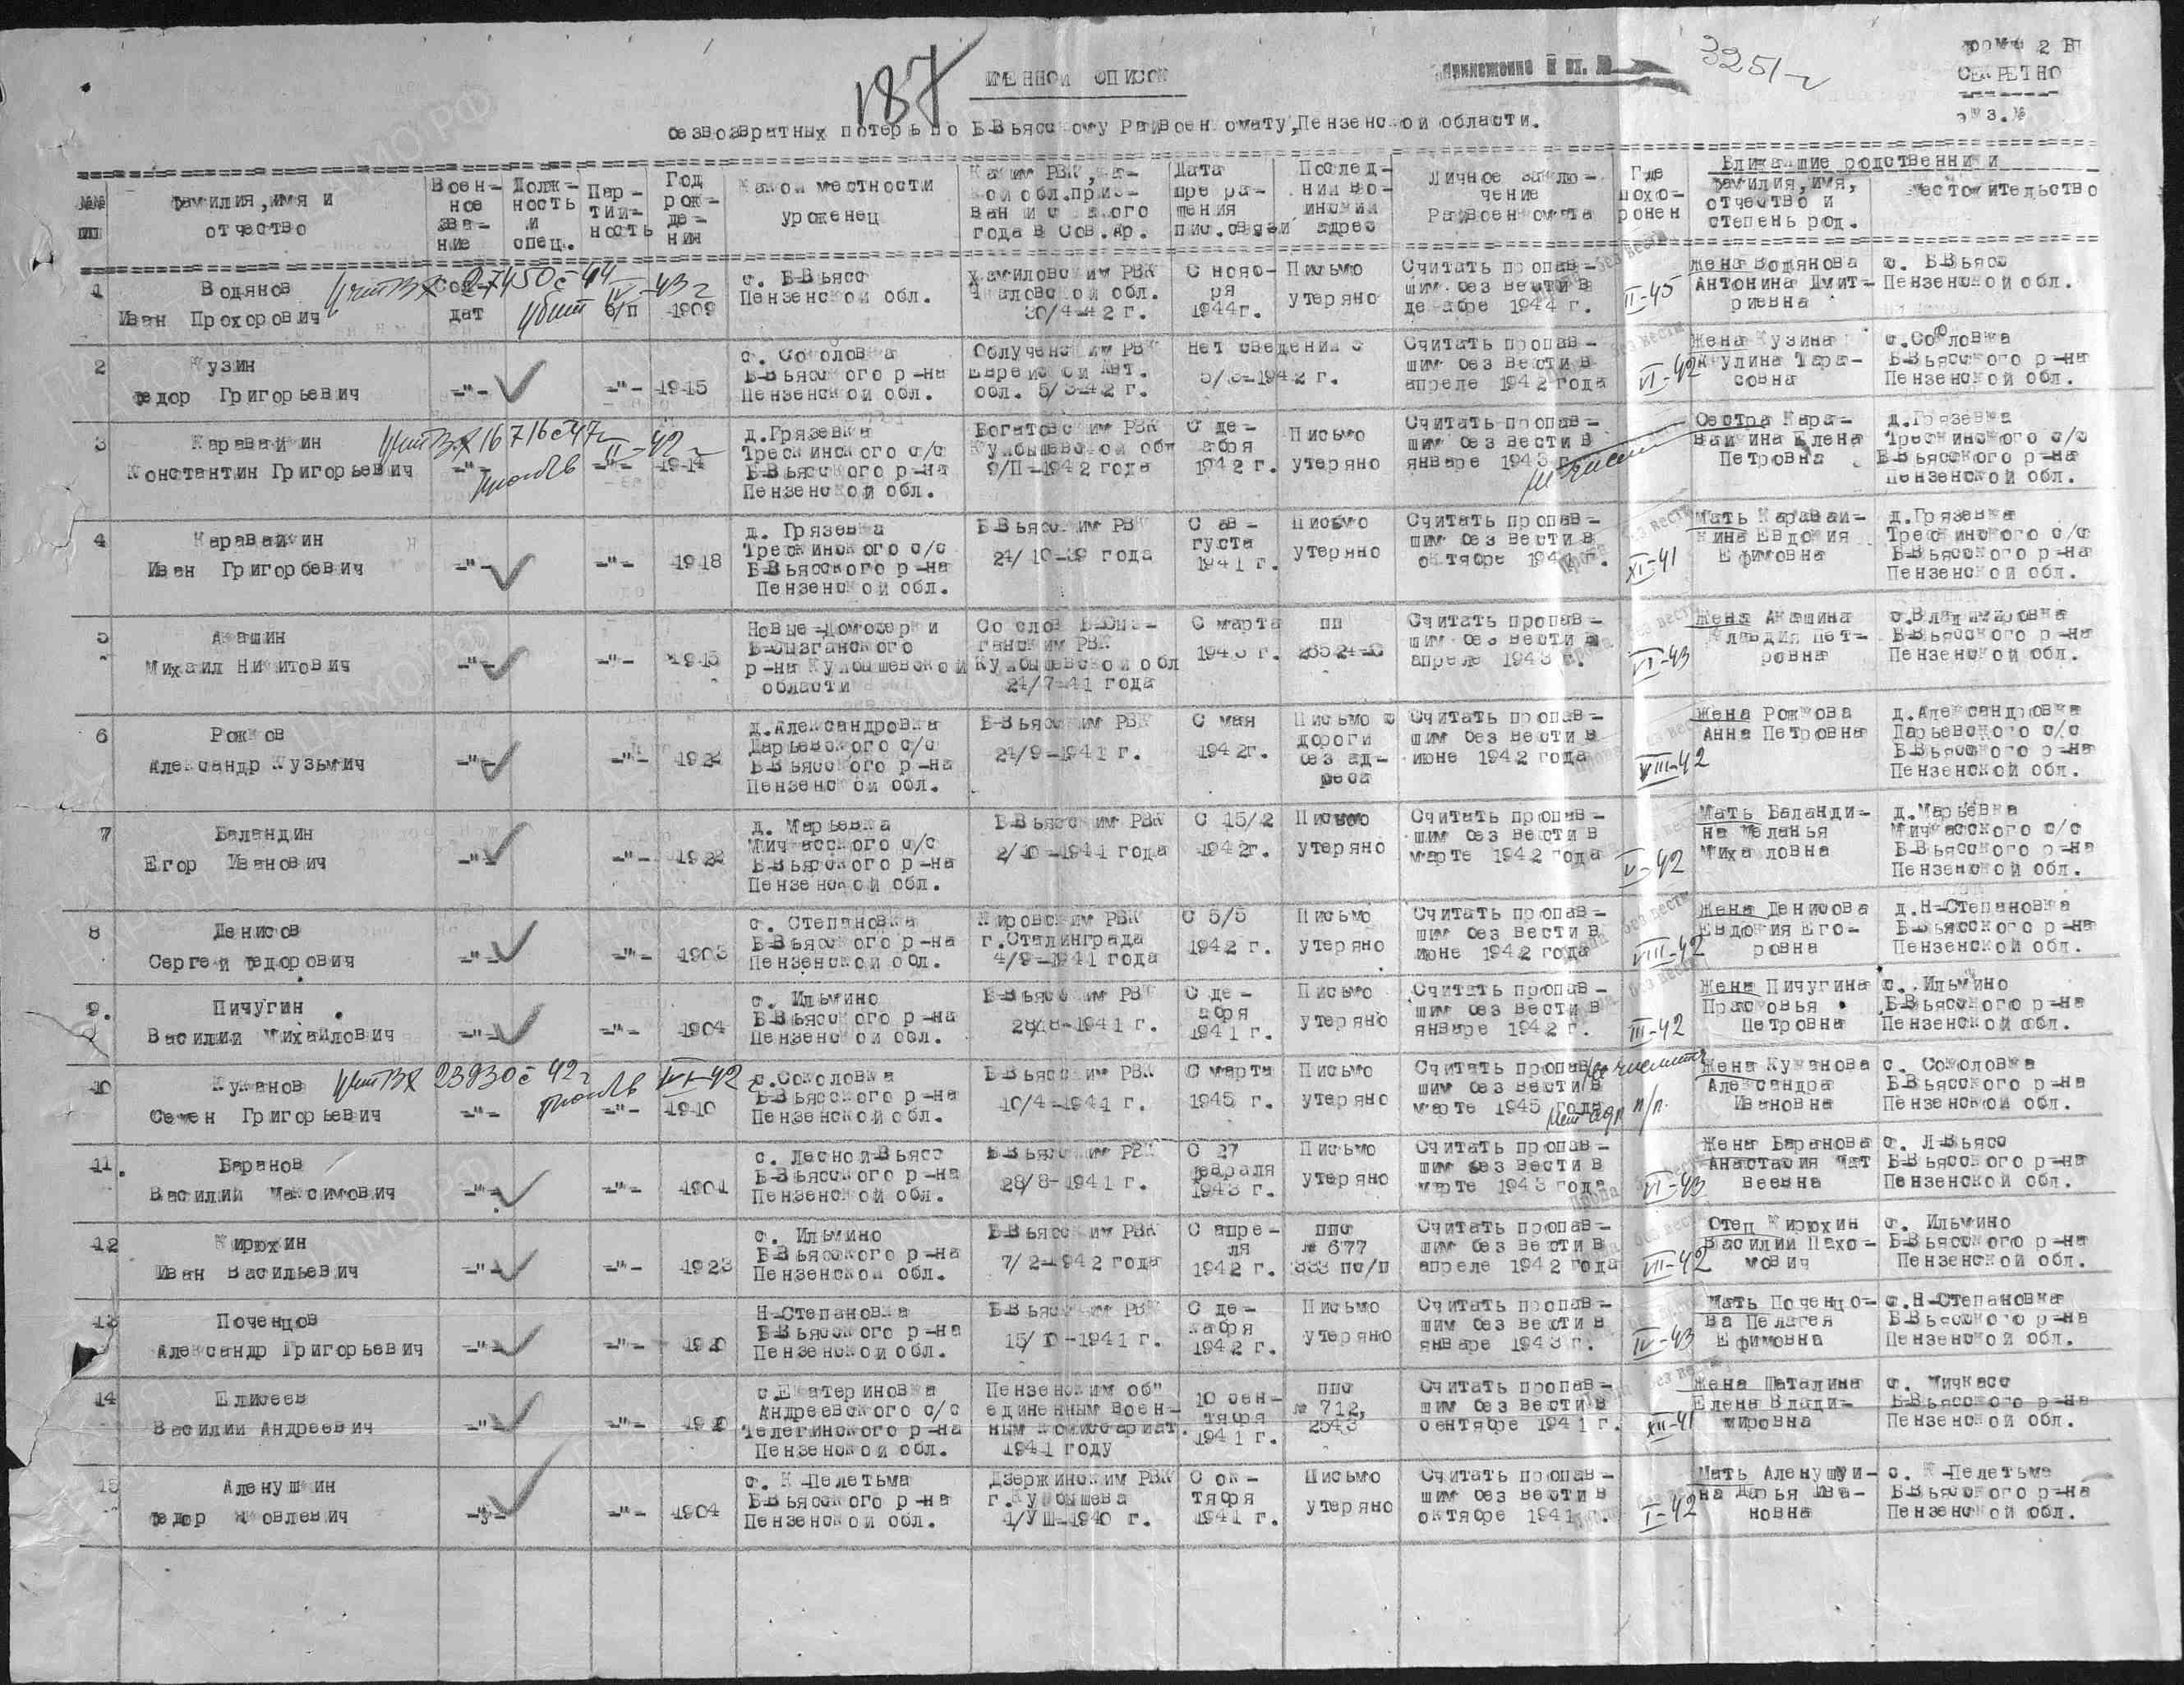 187
ИМЕННОЙ СПИСОК
Приложение к вх. №
3251-с
Форма 2 ВП
СЕКРЕТНО
экз.№
безвозвратных потерь по Б-Вьясскому Райвоенкомату, Пензенской области.
№№ пп
Фамилия, имя и отчество
Воен-ное зва-ние
Долж-ность и спец.
Пар-тий-ность
Год рож-де-ния
Какой местности уроженец
Каким РВК, ка-кой обл. приз-ван и с какого года в Сов.Ар.
Дата прекра-щения пис.связи
Послед-ний во-инский адрес
Личное заклю-чение Райвоенкомата
Где похо-ронен
Ближайшие родственники
Фамилия, имя, отчество и степень род.
Местожительство
1
Водянов
Иван Прохорович
Сол-
дат
27450с-44
убит
IV-43 г
б/п
1909
с. Б-Вьясс
Пензенской обл.
Чкаловской обл.
30/4-42 г.
С нояб-
ря
1944г.
Письмо
утеряно
Считать пропав-
шим без вести в
декабре 1944 г.
II-45
Жена Водянова
Антонина Дмит-
риевна
с. Б-Вьясс
Пензенской обл.
2
Кузин
Федор Григорьевич
-"-
-"-
1915
с. Соколовка
Б-Вьясского р-на
Пензенской обл.
Облученским РВК
Еврейской Авт.
обл. 5/3-42 г.
Нет сведений с
5/3-1942 г.
Считать пропав-
шим без вести в
апреле 1942 года
VI-42
Жена Кузина
Акулина Тара-
совна
с.Соколовка
Б-Вьясского р-на
Пензенской обл.
3
Каравайкин
Константин Григорьевич
16716с47г
II-42 г
-"-
-"-
1914
д.Грязевка
Трескинского с/с
Б-Вьясского р-на
Пензенской обл.
Богатовским РВК
Куйбышевской обл
9/II-1942 года
С де-
кабря
1942 г.
Письмо
утеряно
Считать пропав-
шим без вести в
январе 1943 г.
Сестра Кара-
вайкина Елена
Петровна
д.Грязевка
Трескинского с/с
Б-Вьясского р-на
Пензенской обл.
4
Каравайкин
Иван Григорьевич
-"-
-"-
1918
д. Грязевка
Трескинского с/с
Б-Вьясского р-на
Пензенской обл.
Б-Вьясским РВК
24/10-39 года
С ав-
густа
1941 г.
Письмо
утеряно
Считать пропав-
шим без вести в
октябре 1941 г.
XI-41
Мать Каравай-
кина Евдокия
Ефимовна
д.Грязевка
Трескинского с/с
Б-Вьясского р-на
Пензенской обл.
5
Акашин
Михаил Никитович
-"-
-"-
1915
Новые-Домосерки
Б-Сызганского
р-на Куйбышевской
области
Со слов Б-Сыз-
ганским РВК
Куйбышевской обл
24/7-41 года
С марта
1943 г.
пп
26524-С
Считать пропав-
шим без вести в
апреле 1943 г.
VI-43
Жена Акашина
Клавдия Пет-
ровна
с.Владимировка
Б-Вьясского р-на
Пензенской обл.
6
Рожков
Александр Кузьмич
-"-
-"-
1922
д.Александровка
Дарьевского с/с
Б-Вьясского р-на
Пензенской обл.
Б-Вьясским РВК
24/9-1941 г.
С мая
1942г.
Письмо с
дороги
без ад-
реса
Считать пропав-
шим без вести в
июне 1942 года
VIII-42
Жена Рожкова
Анна Петровна
д.Александровка
Дарьевского с/с
Б-Вьясского р-на
Пензенской обл.
7
Баландин
Егор Иванович
-"-
-"-
1922
д. Марьевка
Мичкасского с/с
Б-Вьясского р-на
Пензенской обл.
Б-Вьясским РВК
2/10-1941 года
С 15/2
1942г.
Письмо
утеряно
Считать пропав-
шим без вести в
марте 1942 года
V-42
Мать Баланди-
на Меланья
Михайловна
д.Марьевка
Мичкасского с/с
Б-Вьясского р-на
Пензенской обл.
8
Денисов
Сергей Федорович
-"-
-"-
1903
с. Степановка
Б-Вьясского р-на
Пензенской обл.
Кировским РВК
г.Сталинграда
4/9-1941 года
С 5/5
1942 г.
Письмо
утеряно
Считать пропав-
шим без вести в
июне 1942 года
VIII-42
Жена Денисова
Евдокия Его-
ровна
д.Н-Степановка
Б-Вьясского р-на
Пензенской обл.
9.
Пичугин
Василий Михайлович
-"-
-"-
1904
с. Ильмино
Б-Вьясского р-на
Пензенской обл.
Б-Вьясским РВК
28/8-1941 г.
С де-
кабря
1941 г.
Письмо
утеряно
Считать пропав-
шим без вести в
январе 1942 г.
III-42
Жена Пичугина
Прасковья
Петровна
с. Ильмино
Б-Вьясского р-на
Пензенской обл.
10
Куманов
Семен Григорьевич
23930с 42г
-"-
-"-
1910
с.Соколовка
Б-Вьясского р-на
Пензенской обл.
Б-Вьясским РВК
10/4-1941 г.
С марта
1945 г.
Письмо
утеряно
Считать пропав-
шим без вести в
марте 1945 года
Жена Куманова
Александра
Ивановна
с. Соколовка
Б-Вьясского р-на
Пензенской обл.
11.
Баранов
Василий Максимович
-"-
-"-
1901
с. Лесной-Вьясс
Б-Вьясского р-на
Пензенской обл.
Б-Вьясским РВК
28/8-1941 г.
С 27
февраля
1943 г.
Письмо
утеряно
Считать пропав-
шим без вести в
марте 1943 года
VI-43
Жена Баранова
Анастасия Мат
веевна
с. Л-Вьясс
Б-Вьясского р-на
Пензенской обл.
12
Кирюхин
Иван Васильевич
-"-
-"-
1923
с. Ильмино
Б-Вьясского р-на
Пензенской обл.
Б-Вьясским РВК
7/2-1942 года
С апре-
ля
1942 г.
ппс
№ 677
833 пс/п
Считать пропав-
шим без вести в
апреле 1942 года
VII-42
Отец Кирюхин
Василий Пахо-
мович
с. Ильмино
Б-Вьясского р-на
Пензенской обл.
13
Поченцов
Александр Григорьевич
-"-
-"-
1920
Н-Степановка
Б-Вьясского р-на
Пензенской обл.
Б-Вьясским РВК
15/10-1941 г.
С де-
кабря
1942 г.
Письмо
утеряно
Считать пропав-
шим без вести в
январе 1943 г.
IV-43
Мать Поченцо-
ва Пелагея
Ефимовна
с.Н-Степановка
Б-Вьясского р-на
Пензенской обл.
14
Елисеев
Василий Андреевич
-"-
-"-
с.Екатериновка
Андреевского с/с
Телегинского р-на
Пензенской обл.
Пензенским об"
единенным воен-
ным комиссариат.
1941 году
10 сен-
тября
1941 г.
ппс
№ 712,
2543
Считать пропав-
шим без вести в
сентябре 1941 г.
XII-41
Жена Шаталина
Елена Влади-
мировна
с. Мичкасс
Б-Вьясского р-на
Пензенской обл.
15
Аленушкин
Федор Яковлевич
-"-
-"-
1904
с. К-Пелетьма
Б-Вьясского р-на
Пензенской обл.
Дзержинским РВК
г.Куйбышева
4/VIII-1940 г.
С ок-
тября
1941 г.
Письмо
утеряно
Считать пропав-
шим без вести в
октябре 1941 г.
I-42
Мать Аленушки-
на Дарья Ива-
новна
с. К-Пелетьма
Б-Вьясского р-на
Пензенской обл.